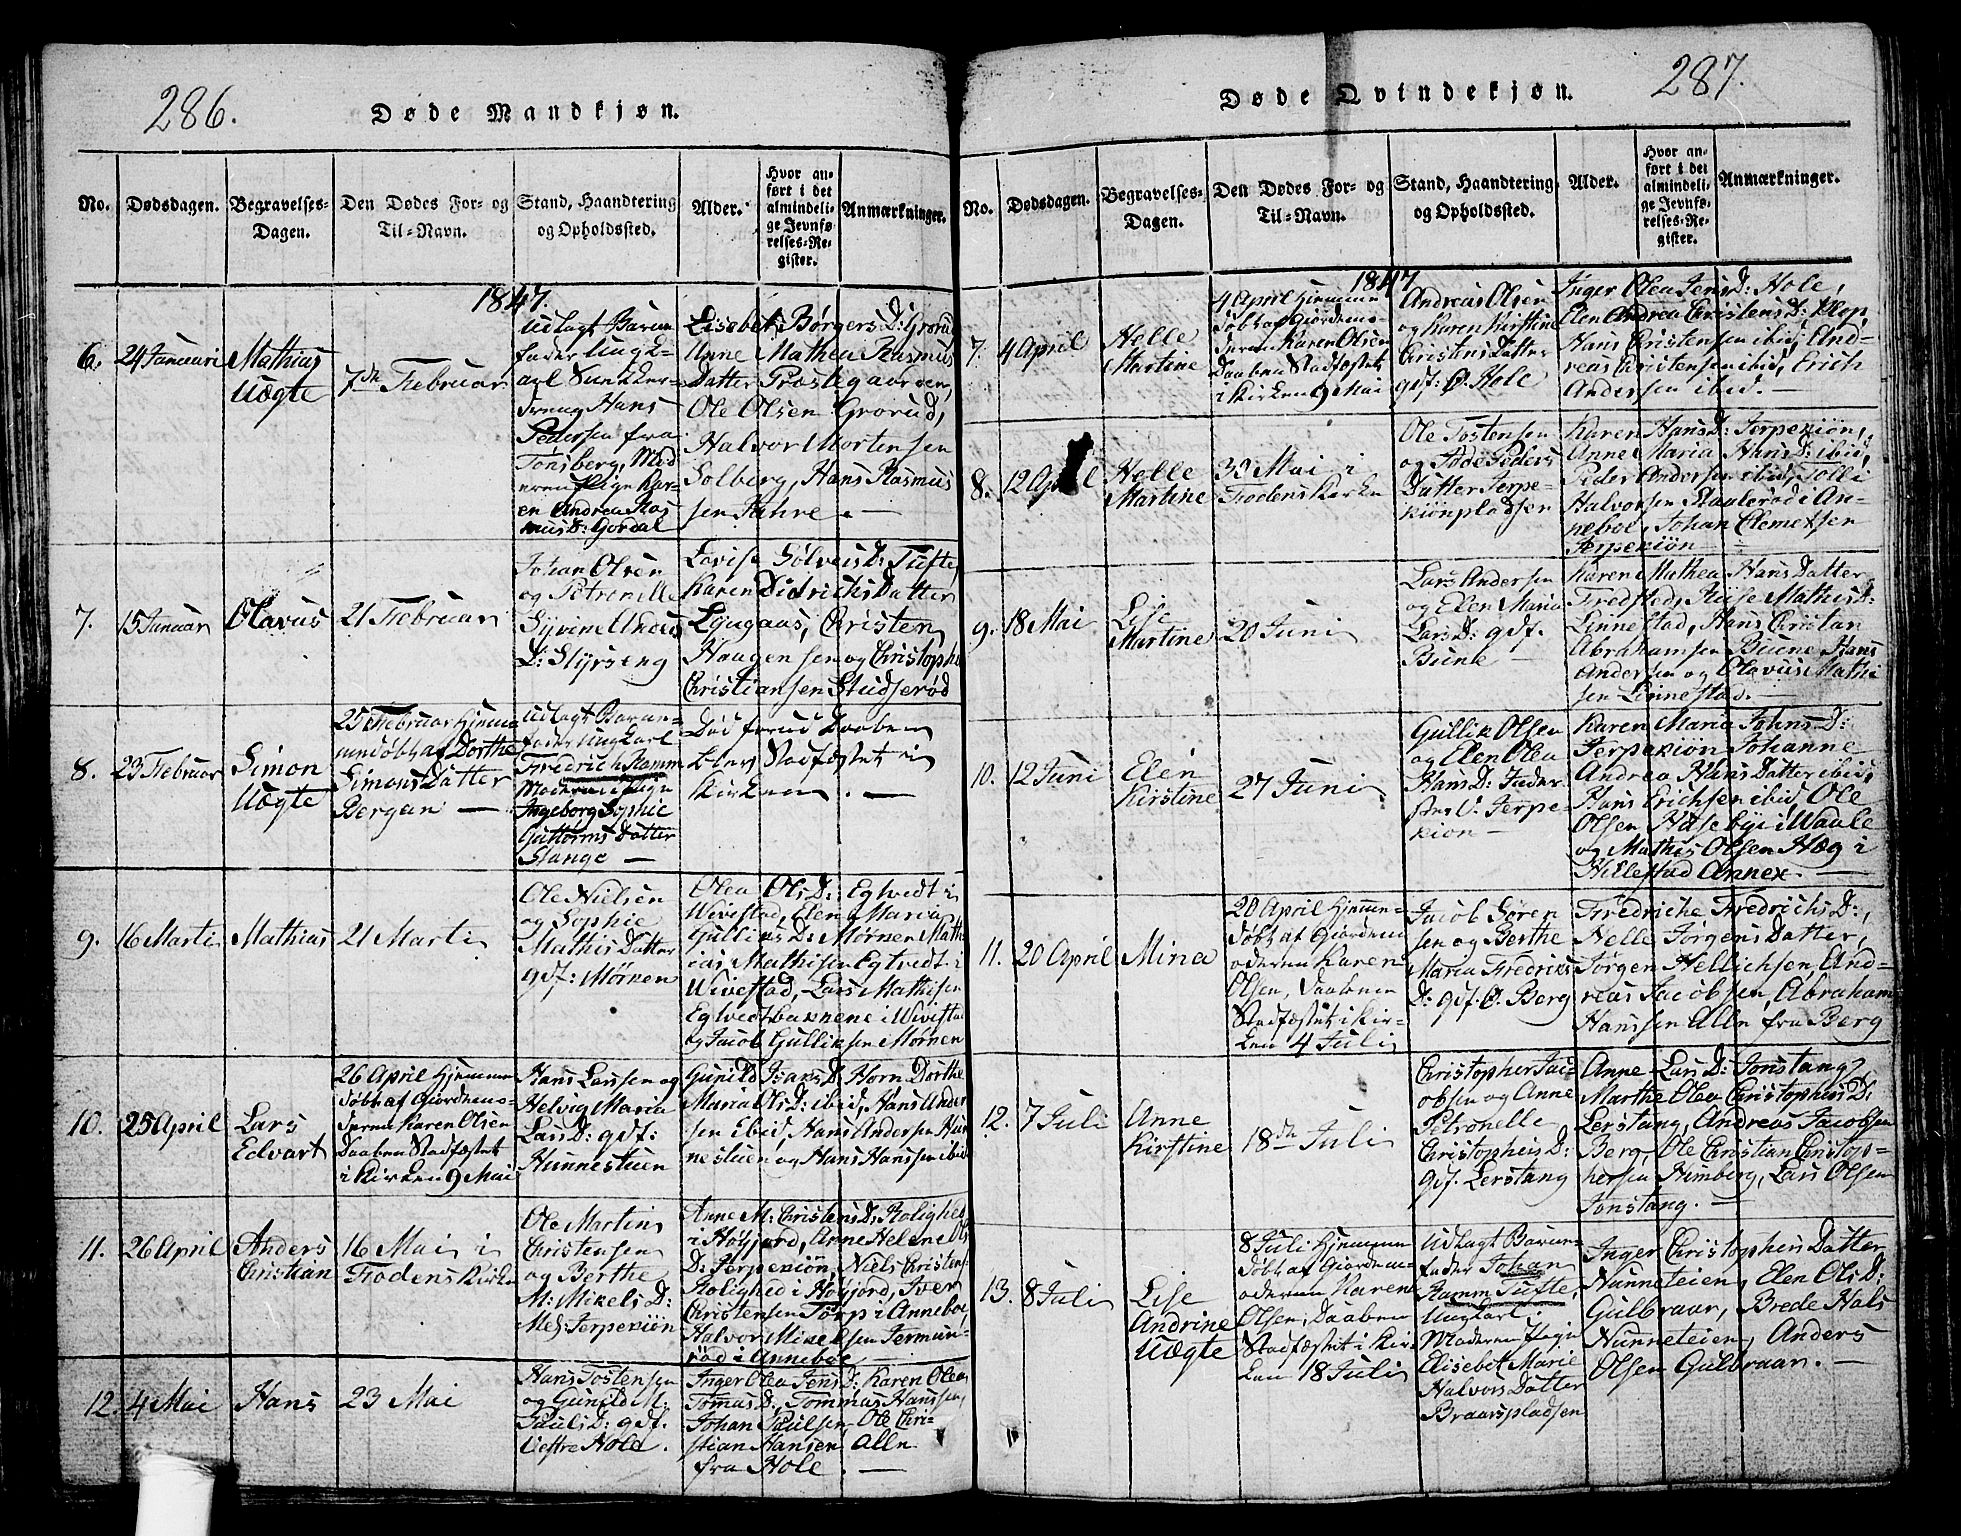 286.
Døde Mandkjøn.
No.
Dødsdagen.
Begravelses-
Dagen.
Den Dødes For- og
Til-Navn.
Stand, Haandtering
og Opholdssted.
Alder.
Hvor an-
ført i det
almindeli-
ge Jevnfø-
relses-Re-
gister.
Anmærkninger.
1847.
6.
24 Januari
Mathias
Uægte
7de Februar
Udlagt Barne-
fader Ungk-
arl
dreng Hans
Pedersen fra
Tønsberg, Mod
eren Pige Kar-
en Andrea Ras
musD: Gordal
Lisebet BørgersD: Grorud
Anne Mathea Rasmus
Datter Præstegaarden,
Ole Olsen Grorud,
Halvor Mortensen
Solberg, Hans Rasmus
sen
7.
15 Januar
Olavus
21 Februar
Johan Olsen
og Petronelle
D: Styrseng
Lovise SølvesD: Tufte,
Karen Didrichs Datter
Ljugaas, Christen
Haugen sen og Christophe
Christiansen Studserød
8.
23 Februar
Simon
Uægte
25 Februar Hjemme
døbt af Dorthe
Simons Datter
Bergan —
Udlagt Barne-
fader Ungkarl
Fredrich Ramm
Moderen Pige
Ingeborg Sophie
Guttorms Datter
Stange —
Død forud Daaben
blev Stadfæstet i
Kirken. —
9.
16 Marti
Mathias
21 Marti
Ole Nielsen
og Sophie
Mathis Datter
gdf: Mørken
Olea OlsD: Egtvedt i
Wivestad, Elen Maria
GulliksD: Mørken Math
ias Mathisen Egtvedt i
Wivestad, Lars Mathisen
Egtvedtbakkene i Wivesta
og Jacob Gulliksen Mørken
10.
25 April
Lars
Edvart
26 April Hjemme
døbt af Giordemo-
deren Karen Olsen
Daaben Stadfæstet
i Kirken 9 Mai
Hans Larssen og
Helvig Maria
LarsD: gdf:
Hunnestuen
Gunild IsaksD: Horn Dorthe
Maria OlsD: ibid, Hans Ander
sen Ibid Hans Andersen Hun
nestuen og Hans Hanssen ibid
11.
26 April
Anders
Christian
16 Mai i
Fodens Kirke
Ole Martin
Christensen
og Berthe
M: MikelsD:
Melø Jerpekiøn
Anne M: ChristensD: Rolighed
i Høyjord, Anne Helene Ols
D: Jerpekiøn, Niels Christens
Rolighed i Høyjord, Iver
Christensen Torp i Anneboe,
Halvor Mikelsen Jermun-
rød i Anneboe
12.
4 Mai
Hans
23 Mai
Hans Tostensen
og Gunild M:
PaulsD: gdf.
Vestre Hole.
Inger Olea JensD: Karen Olea
TomasD: Tommas Hanssen,
Johan Paulsen, Ole Chri-
stian Hansen Alle
fra Hole. —
287.
Døde Qvindekjøn.
No.
Dødsdagen.
Begravelses-
Dagen.
Den Dødes For- og
Til-Navn.
Stand, Haandtering
og Opholdssted.
Alder.
Hvor an-
ført i det
almindeli-
ge Jevnfø-
relses-Re-
gister.
Anmærkninger.
1847
7.
4 April
Helle
Martine
4 April Hjemme
døbt af Giordemo-
deren Karen Olsen
Daaben Stadfæstet
i Kirken 9 Mai
Andreas Olsen
og Karen Kirstine
Christens Datter
gdf: Ø. Hole
Inger Olea JensD: Hole,
Elen Andrea ChristensD:
Hans Christensen ibid, And-
reas Christensen ibid, Erich
Andersen ibid. —
8.
12 April
Helle
Martine
30 Mai i
Fodens Kirke
Ole Tostensen
og Tode Peders
Datter Jerpe-
kiønpladsen
Karen HansD: Jerpekiøn,
Anne Maria HansD: ibid,
Peder Andersen ibid, Tolli
Halvorsen Raaerød i An-
neboe, Johan Clemetsen
Jerpekiøn
9.
18 Mai
Lise
Martine
20 Juni
Lars Andersen
og Elen Maria
LarsD: gdf.
Bune —
Karen Mathea Hans Datter
Fredsted, MathisD:
Linnestad, Hans Christian
Abrahamsen Bune, Hans
Andersen og Olavus Mathi
sen Linnestad. —
10.
12 Juni
Elen
Kirstine
27 Juni
Gullik Olsen
og Elen Olea
HansD: Inder-
V. Jerpe-
kiøn —
Karen Maria JohnsD:
Jerpekiøn Johanne
Andrea Hans Datter ibid,
Hans Erichsen ibid, Ole
Olsen Hasebye i Waale
og Mathis Olsen Hæg i
Hillestad Annex. —
11.
20 April
Mina
20 April Hjemme-
døbt af Giordem-
oderen Karen
Olsen, Daaben
Stadfæstet i Kir-
ken 4 Juli
Jacob Søren
sen og Berthe
Maria Fredriks
D: gdf. Ø. Berg
Fredriche FredrichsD:,
Helle Jørgens Datter,
Jørgen Nellichsen, And-
reas Jacobsen, Abraham
Hanssen Alle fra Berg
12.
7 Juli
Anne
Kirstine
18de Juli
Christopher Jac-
obsen og Anne
Petronelle
ChristophersD:
gdf. Lerstang
Anne LarsD: Jonstang,
Marthe Olea ChristophersD:
Lerstang, Andreas Jacobsen
Berg, Ole Christian Christop-
hersen Himberg, Lars Olsen
Jonstang. —
13.
8 Juli
Lise
Andrine
Uægte
8 Juli Hjemme
døbt af Giordem-
oderen Karen
Olsen, Daaben
Stadfæstet i Kir-
ken 18 Juli
Udlagt Barne-
fader Johan
Ramm Tufte,
Ungkarl
Moderen Pige
Elisebet Marie
Halvors Datter
Braarspladsen
Inger Christophers Datter
Hunneteien, Elen OlsD:
Gulbraar, Brede Hals
Hunneteien, Anders
Olsen Gulbraar. —